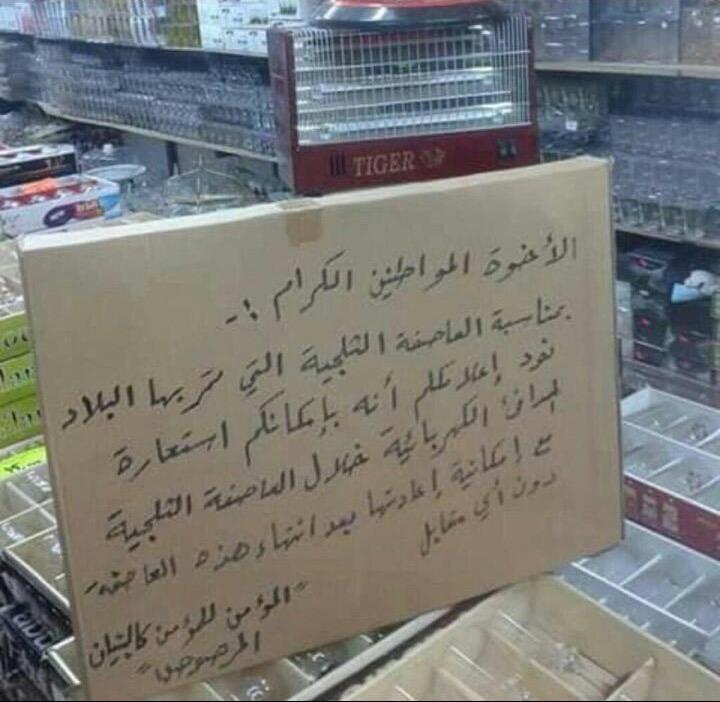 TIGER
الأخوة المواطنين الكرام :-
بمناسبة العاصفة الثلجية التي تمر بها البلاد
نود إعلامكم أنه بإمكانكم استعارة
المدافئ الكهربائية خلال العاصفة الثلجية
مع إمكانية إعادتها بعد انتهاء هذه العاصفة
دون أي مقابل
"المؤمن للمؤمن كالبنيان
المرصوص"